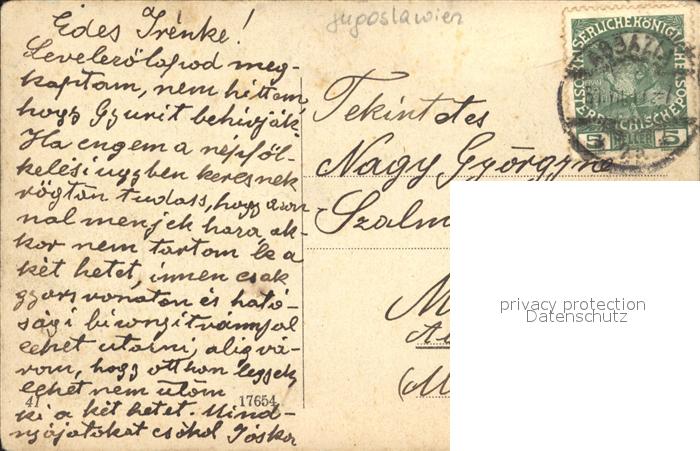 Édes Irénke!
Levelezőlapod meg-
kaptam, nem hittem,
hogy Gyurit behívják.
Ha engem a népföl-
kelési ügyben keresnek
rögtön tudass, hogy azon-
nal menjek haza, ak-
kor nem tartom ki a
két hetet, innen csak
gyorsvonaton és ható-
sági bizonyitvánnyal
lehet utazni, alig vá-
rom, hogy otthon legyek
lehet nem ütöm
ki a két hetet. Mind-
nyájatokat csókol Jóska
41 17654
Jugoslawien
Tekintetes
Nagy Györgyné
Szalm
M
(M
KAISERLICHE KÖNIGLICHE
ÖSTERREICHISCHE POST
5 HELLER 5
ABBAZIA
privacy protection
Datenschutz